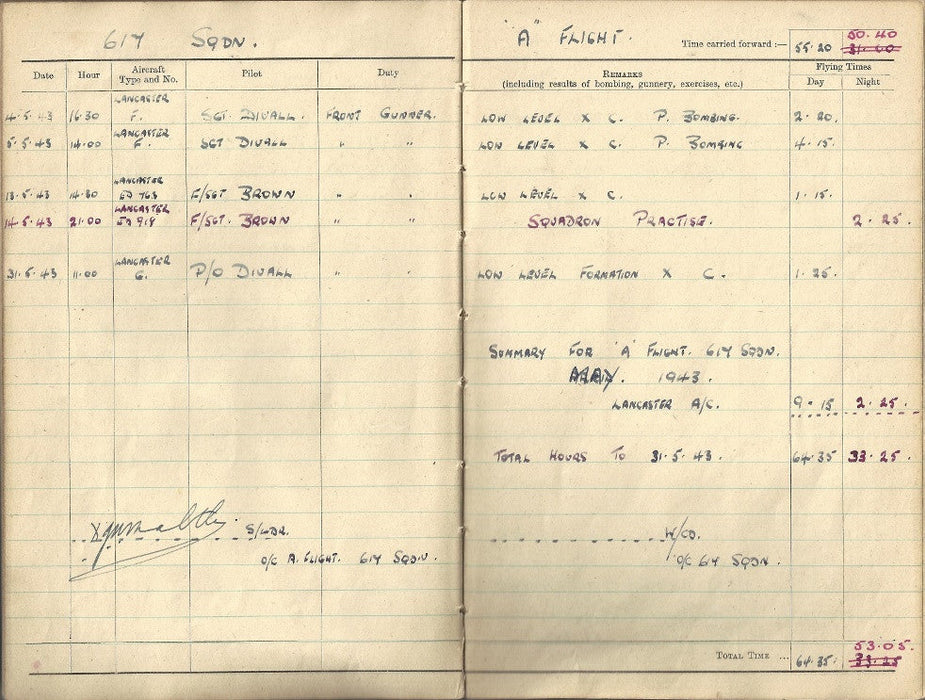 617 SQDN.
"A" FLIGHT.
Time carried forward :— 55·20 50.40 31·00
Date Hour Aircraft Type and No. Pilot Duty
REMARKS
(including results of bombing, gunnery, exercises, etc.)
Flying Times
Day Night
LANCASTER
4·5·43 16·30 F. SGT DIVALL. FRONT GUNNER. LOW LEVEL X C. P. BOMBING. 2·20.
LANCASTER
5·5·43 14·00 F. SGT DIVALL " " LOW LEVEL X C. P BOMBING 4·15.
LANCASTER
13·5·43 14·30 ED 763 F/SGT BROWN " " LOW LEVEL X C. 1·15.
LANCASTER
14·5·43 21·00 ED 918 F/SGT. BROWN " " SQUADRON PRACTISE. 2·25.
LANCASTER
31·5·43 11·00 G. P/O DIVALL " " LOW LEVEL FORMATION X C. 1·25.
SUMMARY FOR 'A' FLIGHT. 617 SQDN.
MAY. 1943.
LANCASTER A/C. 9·15 2·25.
TOTAL HOURS TO 31·5·43. 64·35 33·25.
S/LDR.
O/C A. FLIGHT. 617 SQDN.
W/CO.
O/C 617 SQDN.
TOTAL TIME ... 64·35. 53·05. 33·25